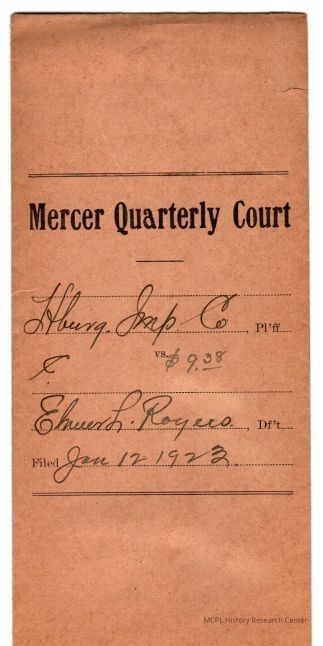 Mercer Quarterly Court
Hburg. Imp Co, Pl'ff
vs. $9.38
T.
Elmer L. Rogers, Df't
Filed Jan 12 1923.
MCPL History Research Center